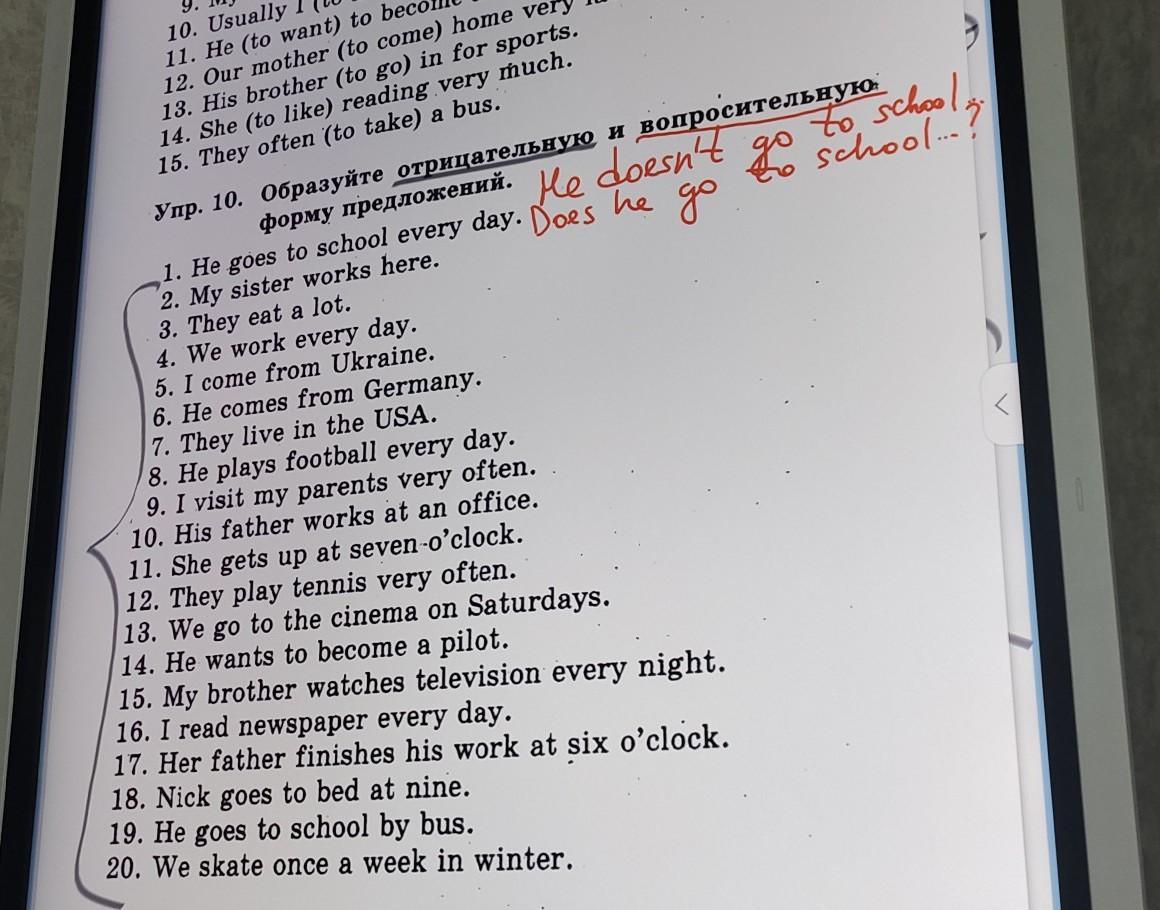 10. Usually I
11. He (to want) to become
12. Our mother (to come) home very
13. His brother (to go) in for sports.
14. She (to like) reading very much.
15. They often (to take) a bus.
Упр. 10. Образуйте отрицательную и вопросительную
форму предложений.
He doesn't go to school...
1. He goes to school every day.
Does he go to school...?
2. My sister works here.
3. They eat a lot.
4. We work every day.
5. I come from Ukraine.
6. He comes from Germany.
7. They live in the USA.
8. He plays football every day.
9. I visit my parents very often.
10. His father works at an office.
11. She gets up at seven o'clock.
12. They play tennis very often.
13. We go to the cinema on Saturdays.
14. He wants to become a pilot.
15. My brother watches television every night.
16. I read newspaper every day.
17. Her father finishes his work at six o'clock.
18. Nick goes to bed at nine.
19. He goes to school by bus.
20. We skate once a week in winter.